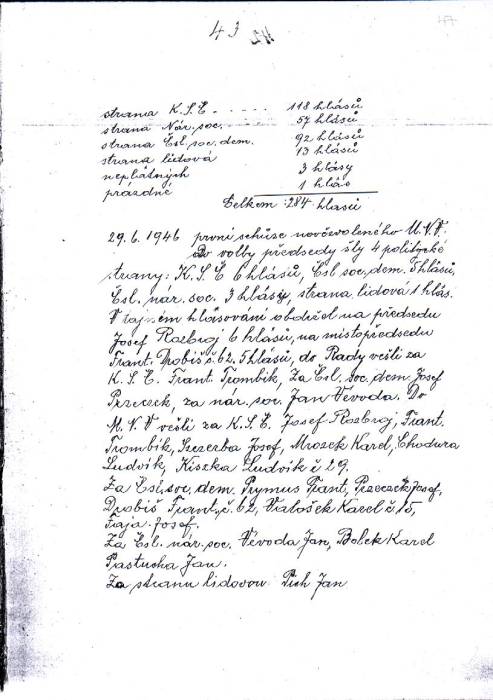 43 42 47
strana K.S.Č. . . . . . 118 hlasů
strana Nár. soc. . . . . 57 hlasů
strana Čsl. soc. dem. 92 hlasů
strana lidová 13 hlasů
neplatných 3 hlasy
prázdné 1 hlas
Celkem : 284 hlasů
29.6.1946 první schůze novězvoleného M.N.V.
Do volby předsedy šly 4 politycké
strany: K.S.Č 6 hlasů, Čsl soc. dem. 5 hlasů,
Čsl. nár. soc. 3 hlasy, strana lidová 1 hlas.
V tajném hlasování obdržel na předsedu
Josef Rozbroj 6 hlasů, na místopředsedu
Frant. Drobiš č. 62. 5 hlasů, do Rady vešli za
K.S.Č. Frant Trombik, Za Čsl. soc. dem. Josef
Przeczek, za nár. soc. Jan Vévoda. Do
M.N.V vešli za K.S.Č. Josef Rozbroj, Frant.
Trombik, Szczerba Josef, Mrozek Karel, Chodura
Ludvík, Kiszka Ludvík č 29.
Za Čsl. soc. dem. Prymus Frant, Przeczek Josef,
Drobiš Frant. č. 62, Valošek Karel č 15,
Faja Josef.
Za Čsl. nár. soc. Vévoda Jan, Bolek Karel
Pastucha Jan.
Za stranu lidovou Pich Jan